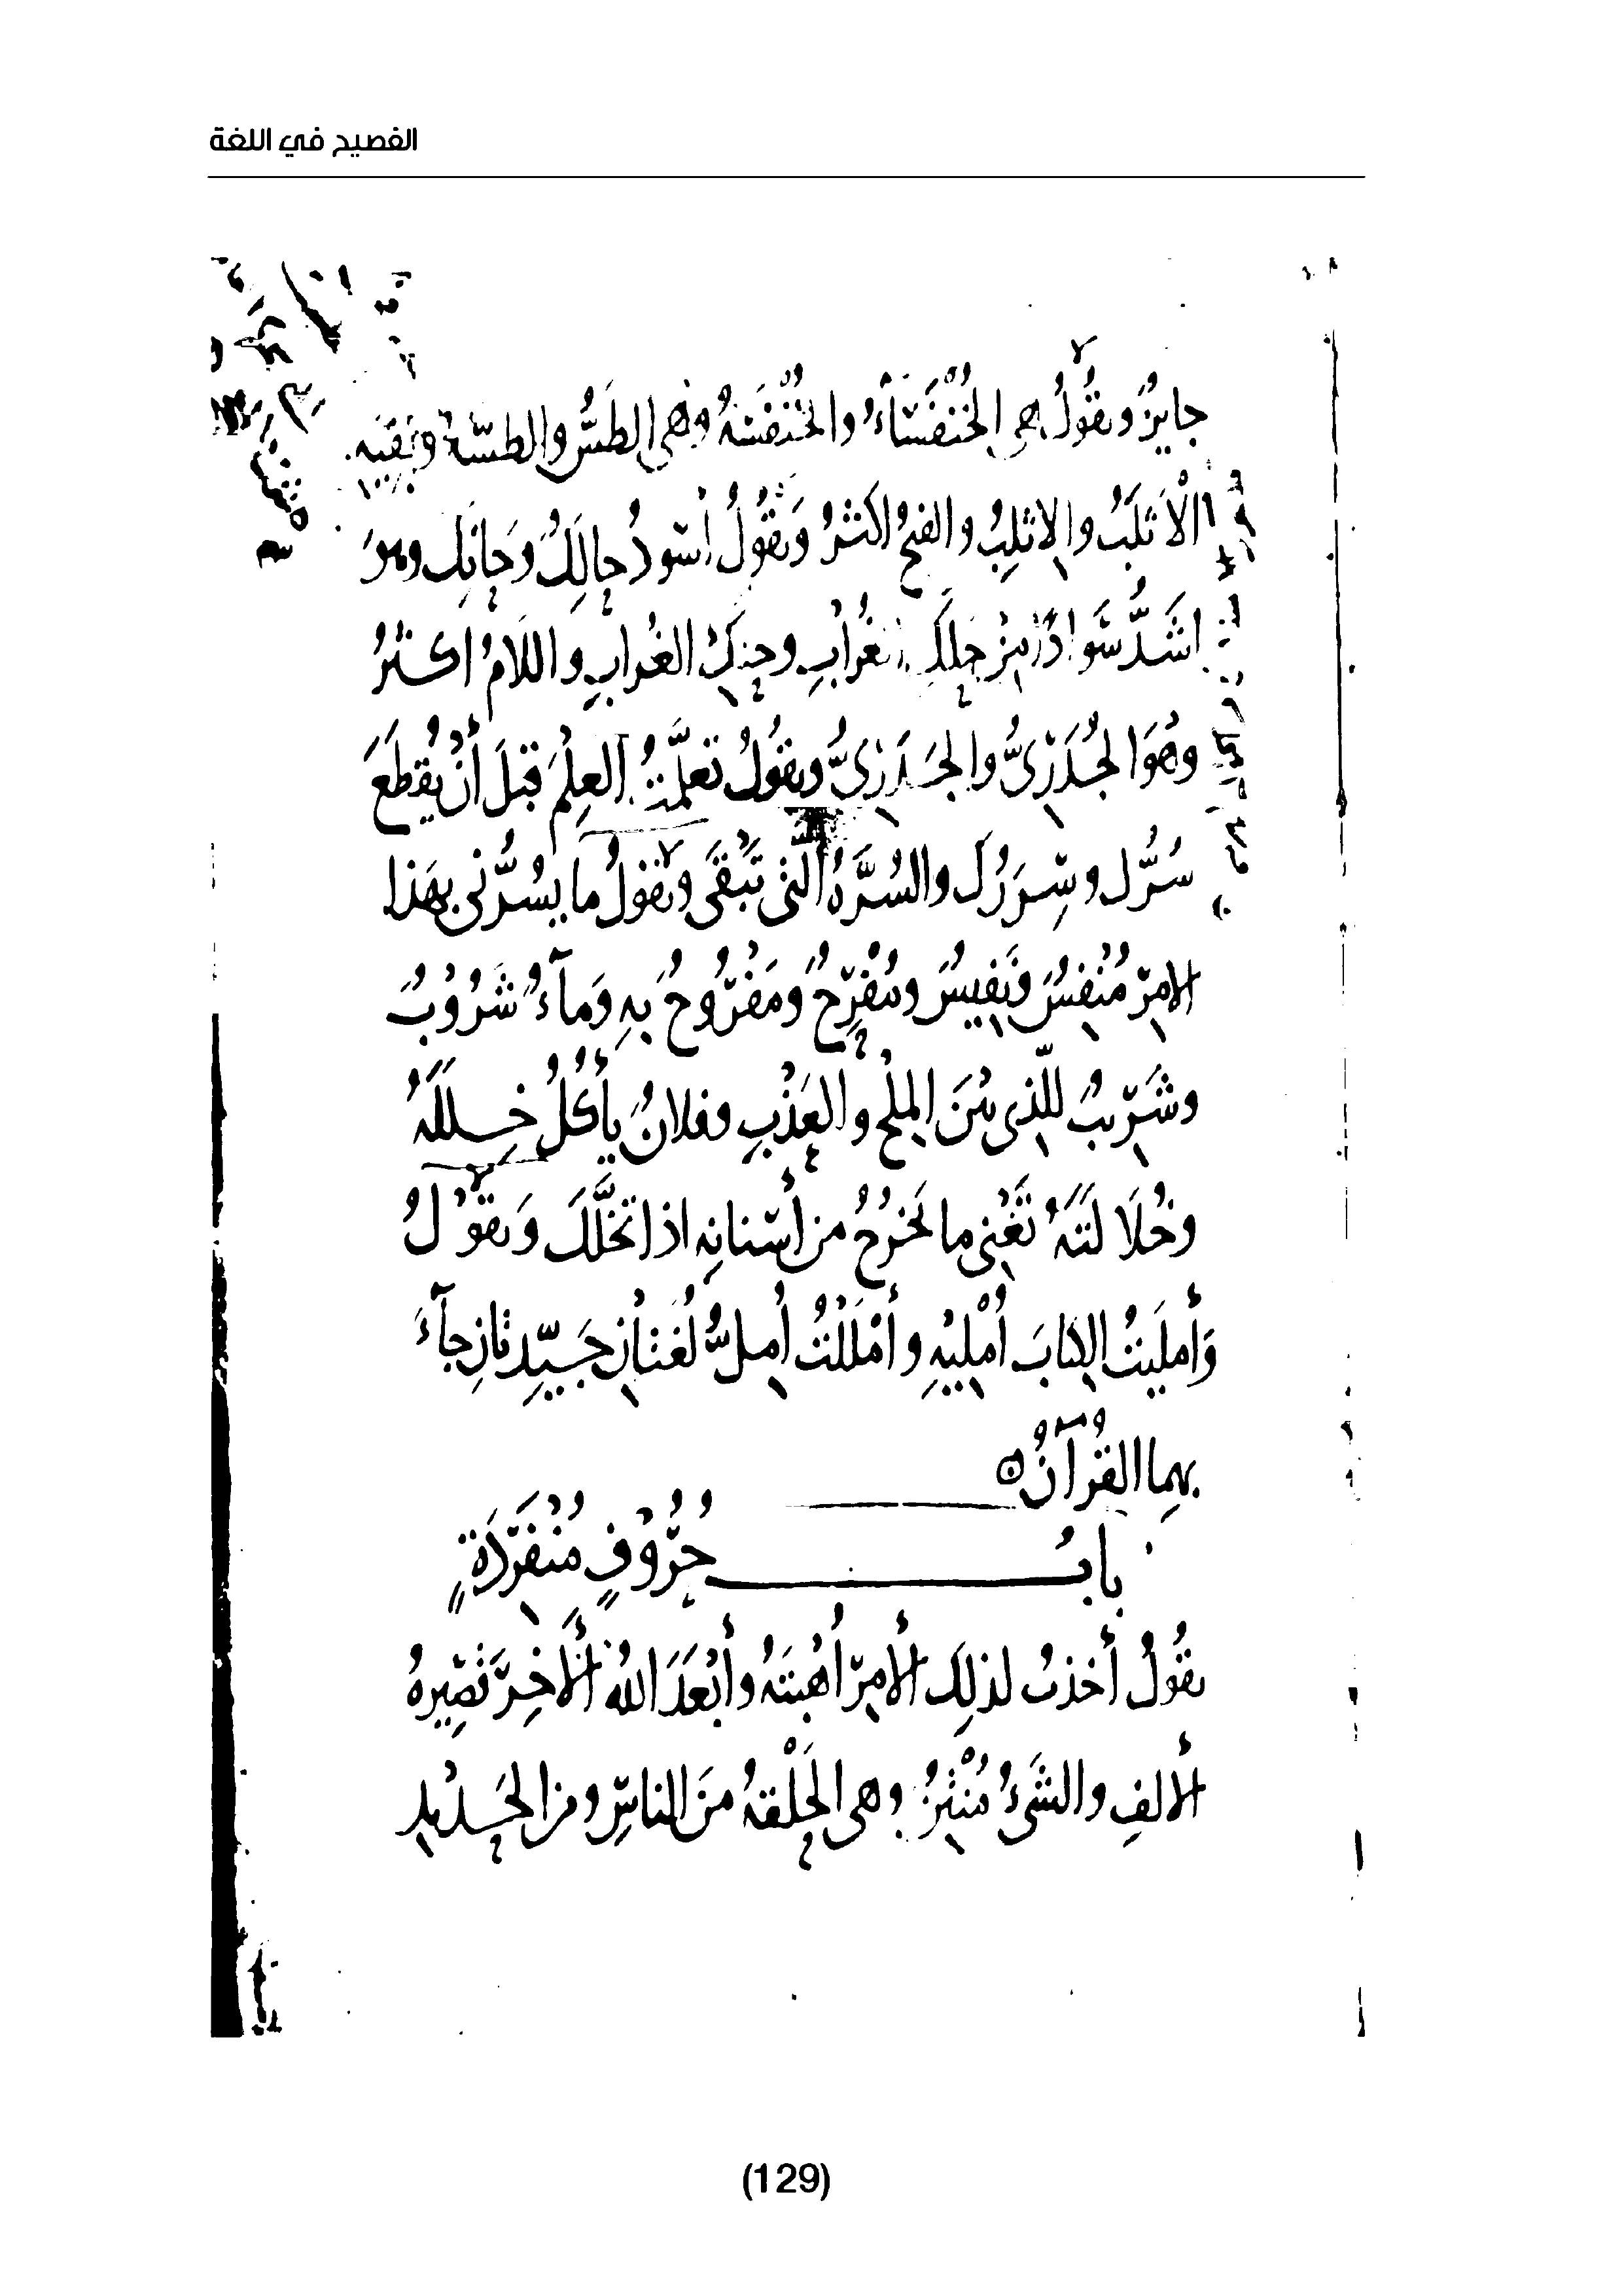 الفصيح في اللغة
جايزٌ وتقُولُ هى الخُنْفَسَآءُ والخُنْفَسَةُ وهى الطَسُّ والطسّة وبفيه
الْاَثلَبُ والاِثلِبُ والفتحُ اكثرُ وَتقُولُ أسودُ حالِكٌ وَحانِك وهوَ
اشَدُّ سَوادًا مِنْ حلَكِ الغُرابِ وحنكِ الغُرابِ واللَامُ اكثرُ
وهُوَ الجُدَرْىُّ والجَدَرْىُّ وتقُولُ تعلَّمتُ العِلْمَ قبَلَ أنْ يُقطَعَ
سُرُّك وسِرَرُكَ والسُرَّةُ الّتى تَبْقَى وتقولُ ما يسُرُّنى بهَذا
الامرِ مُنْفِسٌ وَنَفِيسٌ ومُفْرِحٌ ومَفْرُوحٌ بهِ وَمآءٌ شَرُوْبٌ
وشَرِيبٌ للّذى بَيْنَ المِلْحِ والعَذْبِ وفلانٌ يأكُلُ خِلَلَهُ
وخُلَالَتَهُ تَعْنى ما يَخْرُجُ من أسْنانِهِ اذا تخَلَّلَ وَتقوْلُ
وَأمليْتُ الكتابَ أُمْلِيْهِ وأمْلَلْتُ أُمِلُّ لُغتانِ جَيِّدتانِ جآءَ
بهِما القُرْآنُ ه
بابُ حُرُوْفٍ مُنْفَرِدَةٍ
تقُولُ أخذتُ لذلِكَ الأمرِ أُهْبَتَهُ وأبْعَدَ اللهُ الأَخِرَ قَصِيرهُ
الألفِ والشَىءُ مُنْتِنٌ وهى الحَلْقةُ منَ الناسِ ومن الحَدْيدِ
(129)